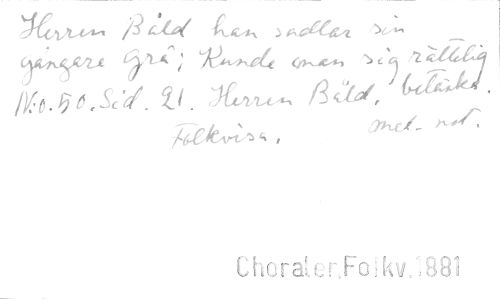 Herren Båld han sadlar sin
gångare grå; Kunde man sig rättelig
betänka.
N:o. 50. Sid. 21. Herren Båld.
Folkvisa. med not.
Choraler.Folkv.1881